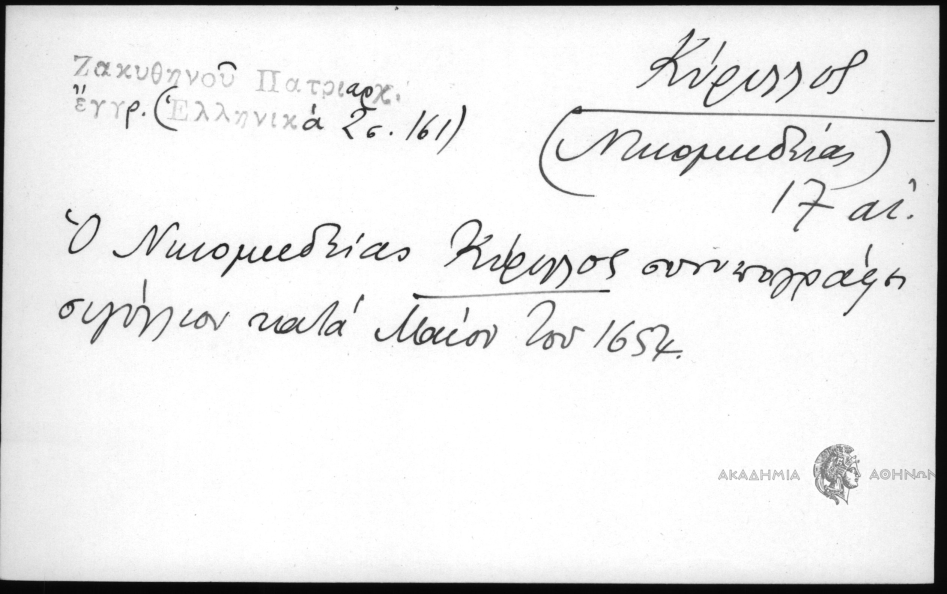 Ζακυθηνοῦ Πατριαρχ.
ἔγγρ. (Ἑλληνικά 2 σ. 161)
Κύριλλος
(Νικομηδείας)
17 αἰ.
Ὁ Νικομηδείας Κύριλλος συνυπογράφει
σιγίλλιον κατά Μαΐον τοῦ 1654.
ΑΚΑΔΗΜΙΑ ΑΘΗΝΩΝ